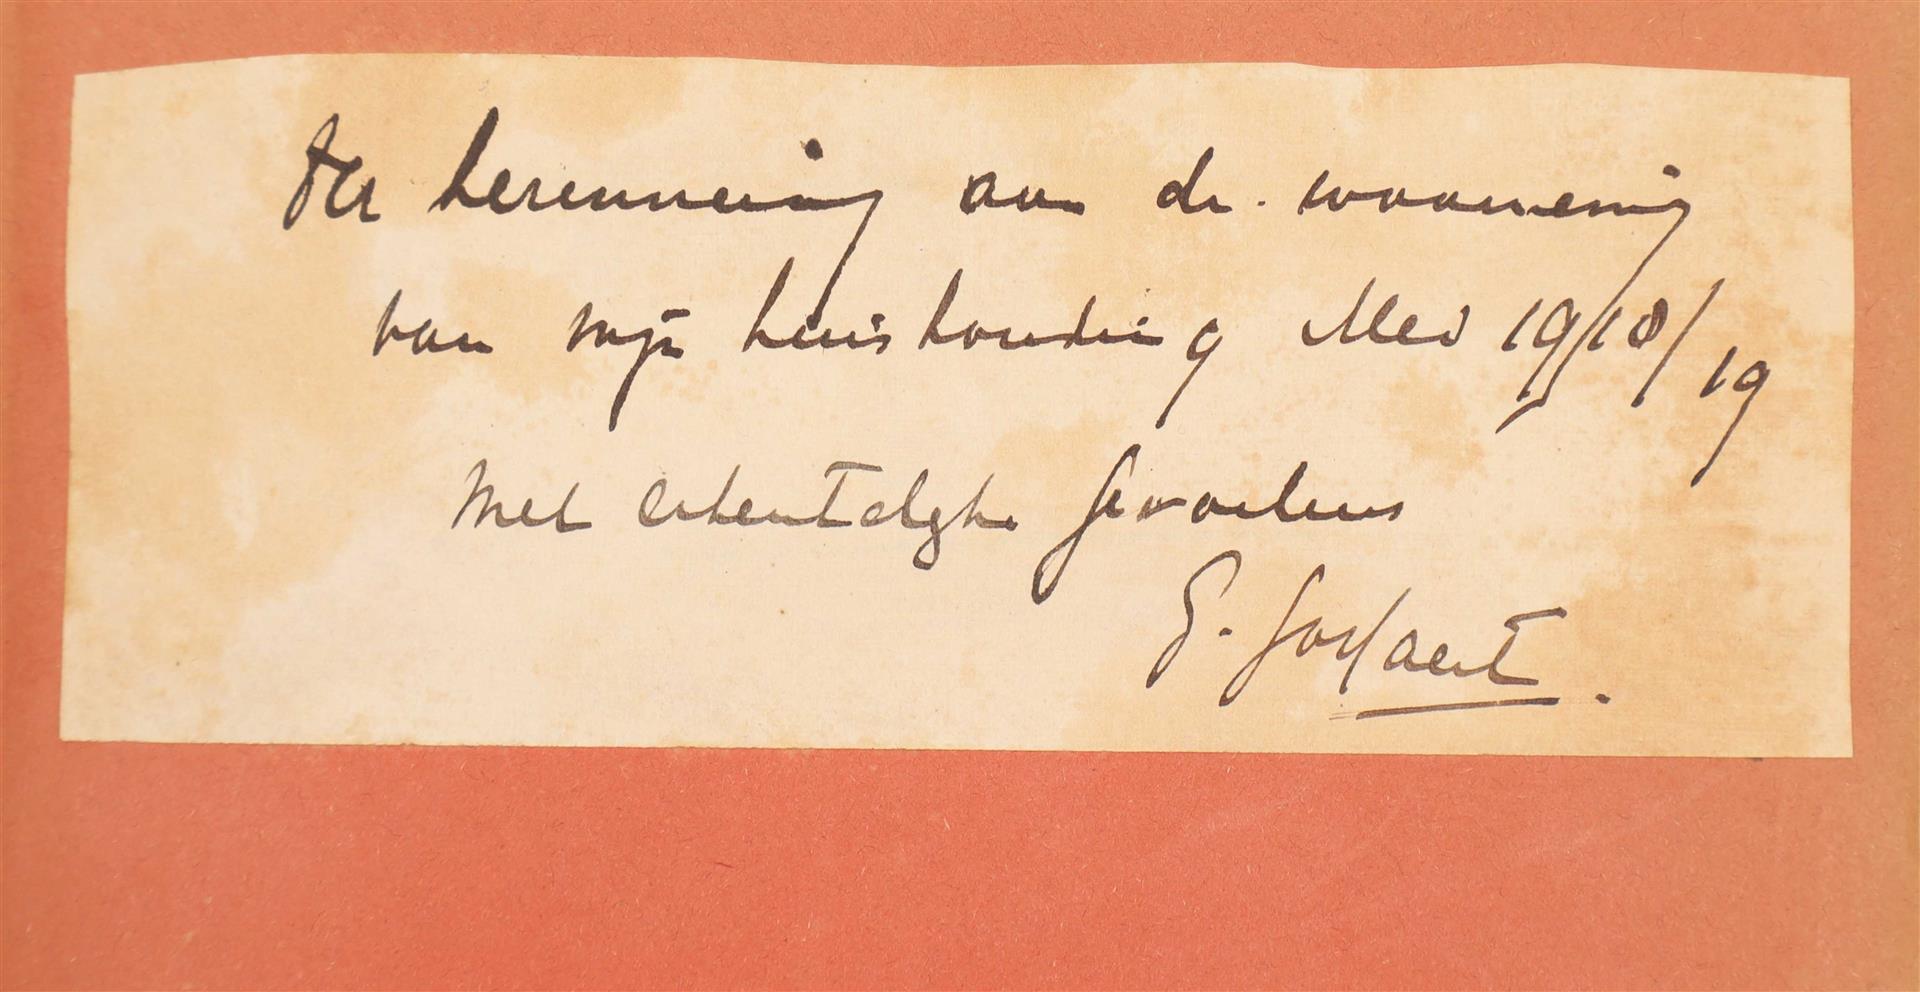 ter herinnering aan de waarneming
van mijn huishouding 1918/19
Met erkentelijke gevoelens
G. Gossaert.